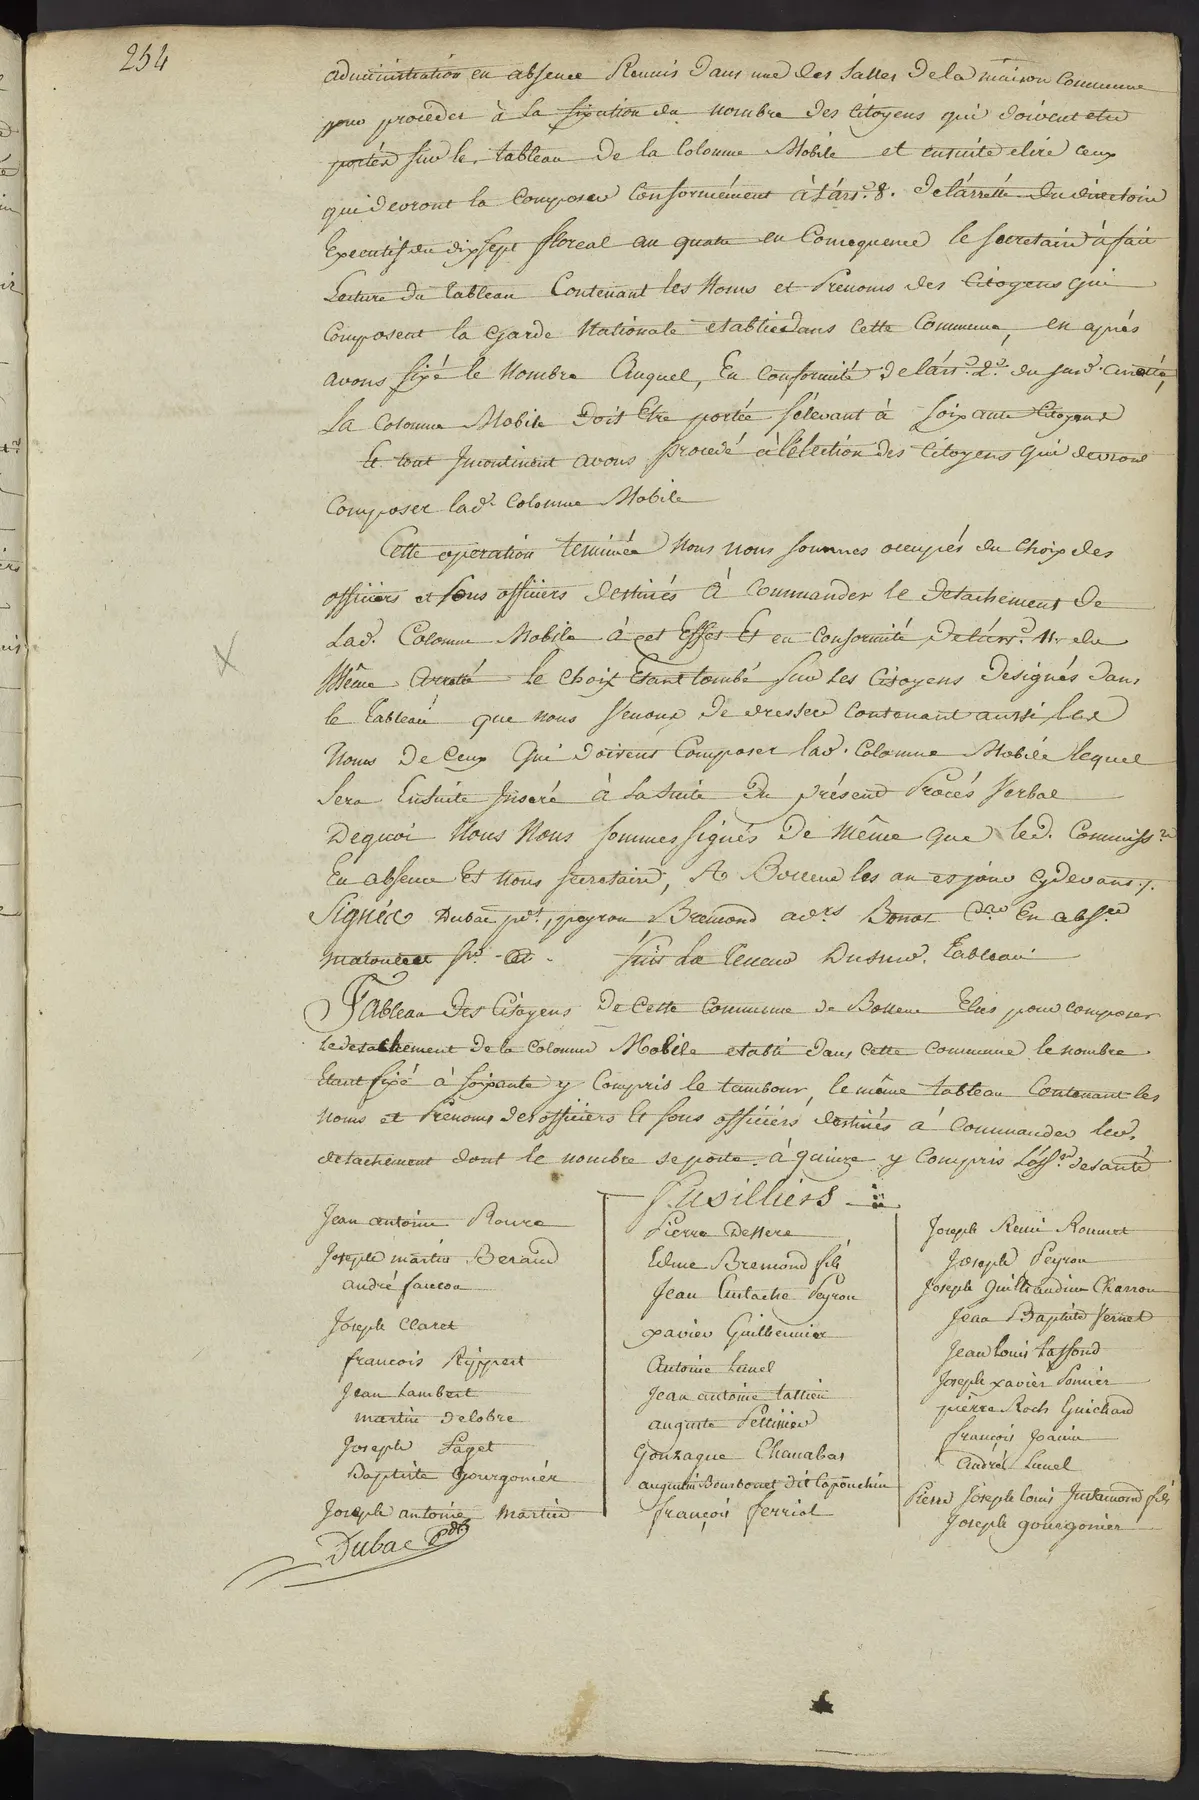 254
administration en absence Reunis Dans une des Salles De la maison Commune
pour proceder à la fixation du nombre des Citoyens qui doivent etre
portés sur le tableau de la Colonne Mobile et ensuite elire ceux
qui devront la Composer Conformément à l'art. 8. De l'arrêté du directoire
Executif du dix sept floreal an quatre en Consequence le secretaire à fait
Lecture du tableau Contenant les Noms et Prenoms des Citoyens qui
Composent la garde Nationale etablie dans Cette Commune, en après
avons fixé le Nombre Auquel, En Conformité de l'art. 2. du susd. arrêté,
La Colonne Mobile Doit Etre portée s'élevant à soixante Citoyens
Et tout Incontinent avons procedé à l'élection des Citoyens qui devront
Composer lad. Colonne Mobile
Cette operation terminée Nous nous sommes occupés du choix des
officiers et sous officiers destinés à Commander le detachement de
Lad. Colonne Mobile à cet Effet Et en Conformité De l'art. 11. du
Même Arrêté le Choix Etant tombé sur les Citoyens designés dans
le tableau que nous venons de dresser contenant aussi les
Noms de Ceux Qui doivent Composer lad. Colonne Mobile lequel
Sera Ensuite Inseré à la suite Du présent Procés Verbal
De quoi Nous Nous sommes signés De Même que led. Commiss.re
En absence Et Nous secretaire, A Bollene les an et jour Cy devant /.
Signés Dubac pdt., peyron Bremond ad.rs Bonot C.re En abs.ce
Suit La Teneur Dusud. Tableau
Tableau Des Citoyens De Cette Commune de Bollene Elus pour composer
le detachement De la Colonne Mobile etabli dans cette Commune le nombre
Etant fixé à soixante y Compris le tambour, le même tableau Contenant les
Noms et Prenoms des officiers Et sous officiers destinés à Commander led.
detachement dont le nombre se porte à quinze y Compris L'off.er de santé
Fusilliers
Jean antoine Roure
Joseph martin Beraud
andré faucon
Joseph Claret
francois Rippert
Jean Lambert
martin delobre
Joseph Paget
Baptiste Gourgonier
Joseph antoine Martin
Pierre Dessere
Edme Bremond fils
Jean Eustache Peyron
Xavier Guilhermier
Antoine Lunel
Jean antoine tattien
auguste Pellinier
Gonzague Chanabas
augustin Boursonet dit Capouchin
françois ferriol
Joseph Remi Rouvet
Joseph Peyron
Joseph Guilhaudin Charron
Jean Baptiste Vernet
Jean Louis Laffond
Joseph xavier Ponier
pierre Roch Guichard
françois Joanin
André Lunel
Pierre Joseph Louis Justamond fils
Joseph gourgonier
Dubac Pdt